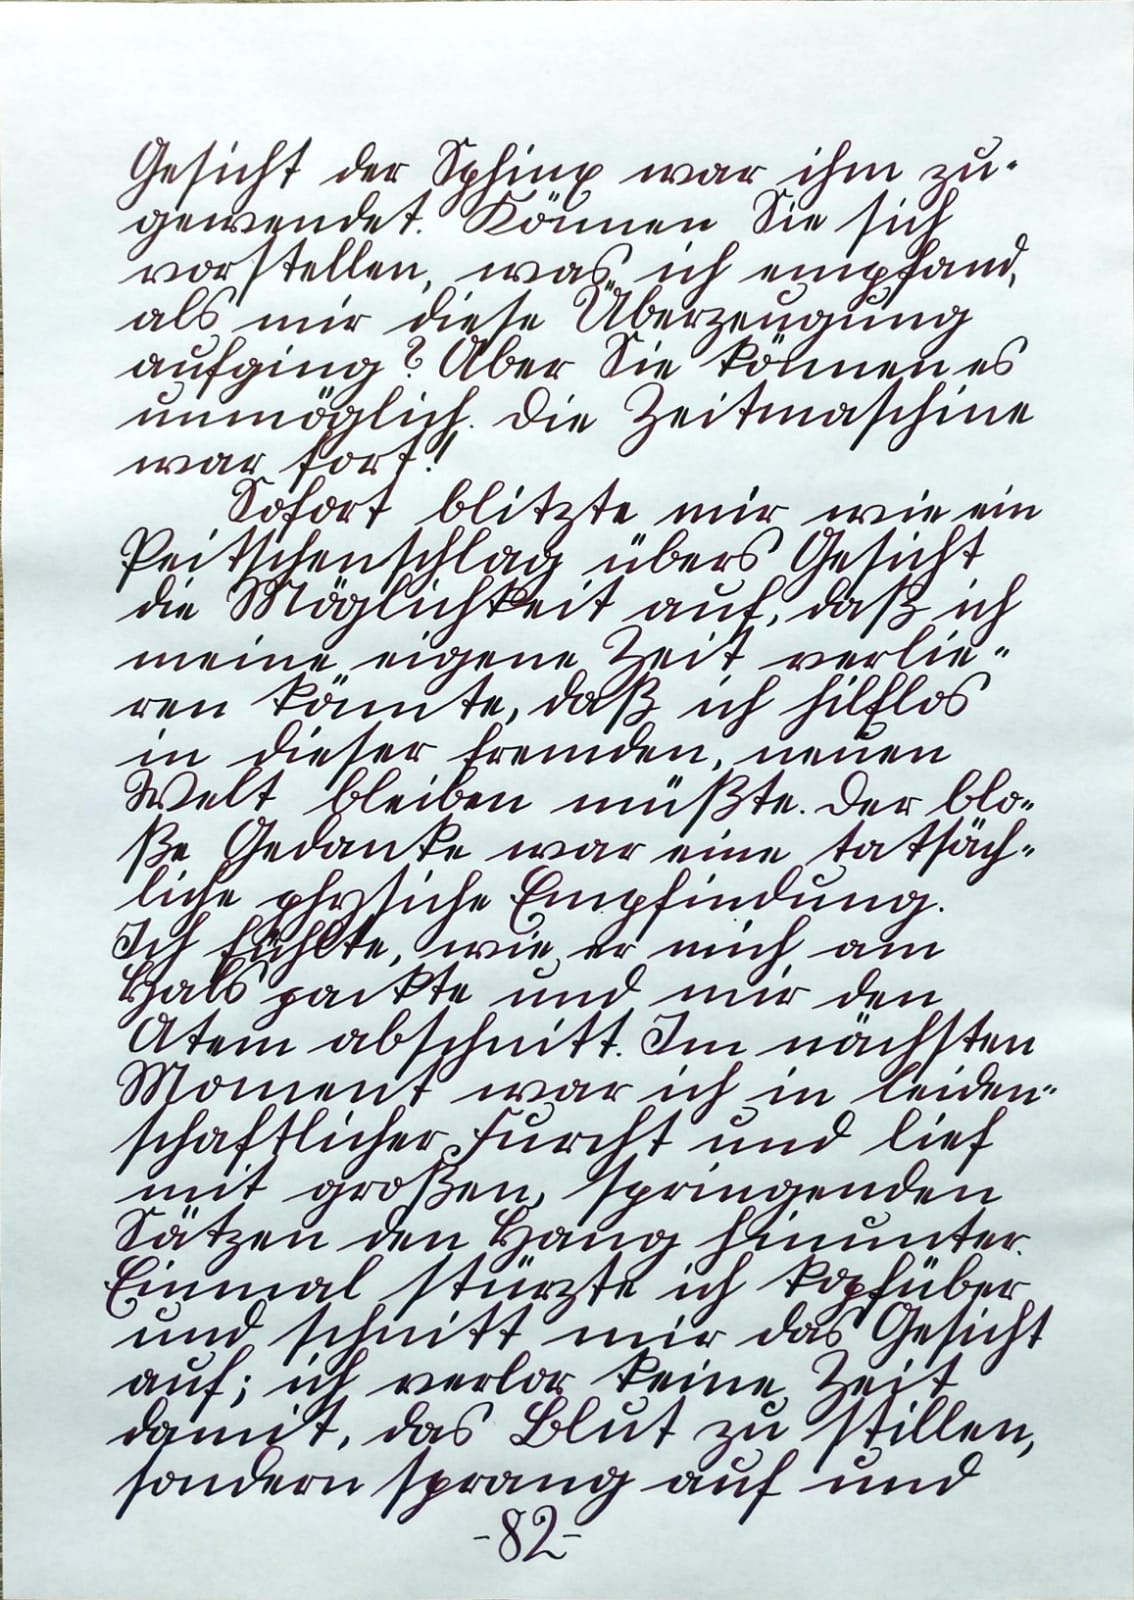 Gesicht der Sphinx war ihm zu-
gewendet. Können Sie sich
vorstellen, was ich empfand,
als mir diese Überzeugung
aufging? Aber Sie können es
unmöglich. Die Zeitmaschine
war fort!
Sofort blitzte mir wie ein
Peitschenschlag übers Gesicht
die Möglichkeit auf, daß ich
meine eigene Zeit verlie-
ren könnte, daß ich hilflos
in dieser fremden, neuen
Welt bleiben müßte. Der blo-
ße Gedanke war eine tatsäch-
liche physiche Empfindung.
Ich fühlte, wie er mich am
Hals packte und mir den
Atem abschnitt. Im nächsten
Moment war ich in leiden-
schaftlicher Furcht und lief
mit großen, springenden
Sätzen den Hang hinunter.
Einmal stürzte ich kopfüber
und schnitt mir das Gesicht
auf; ich verlor keine Zeit
damit, das Blut zu stillen,
sondern sprang auf und
-82-